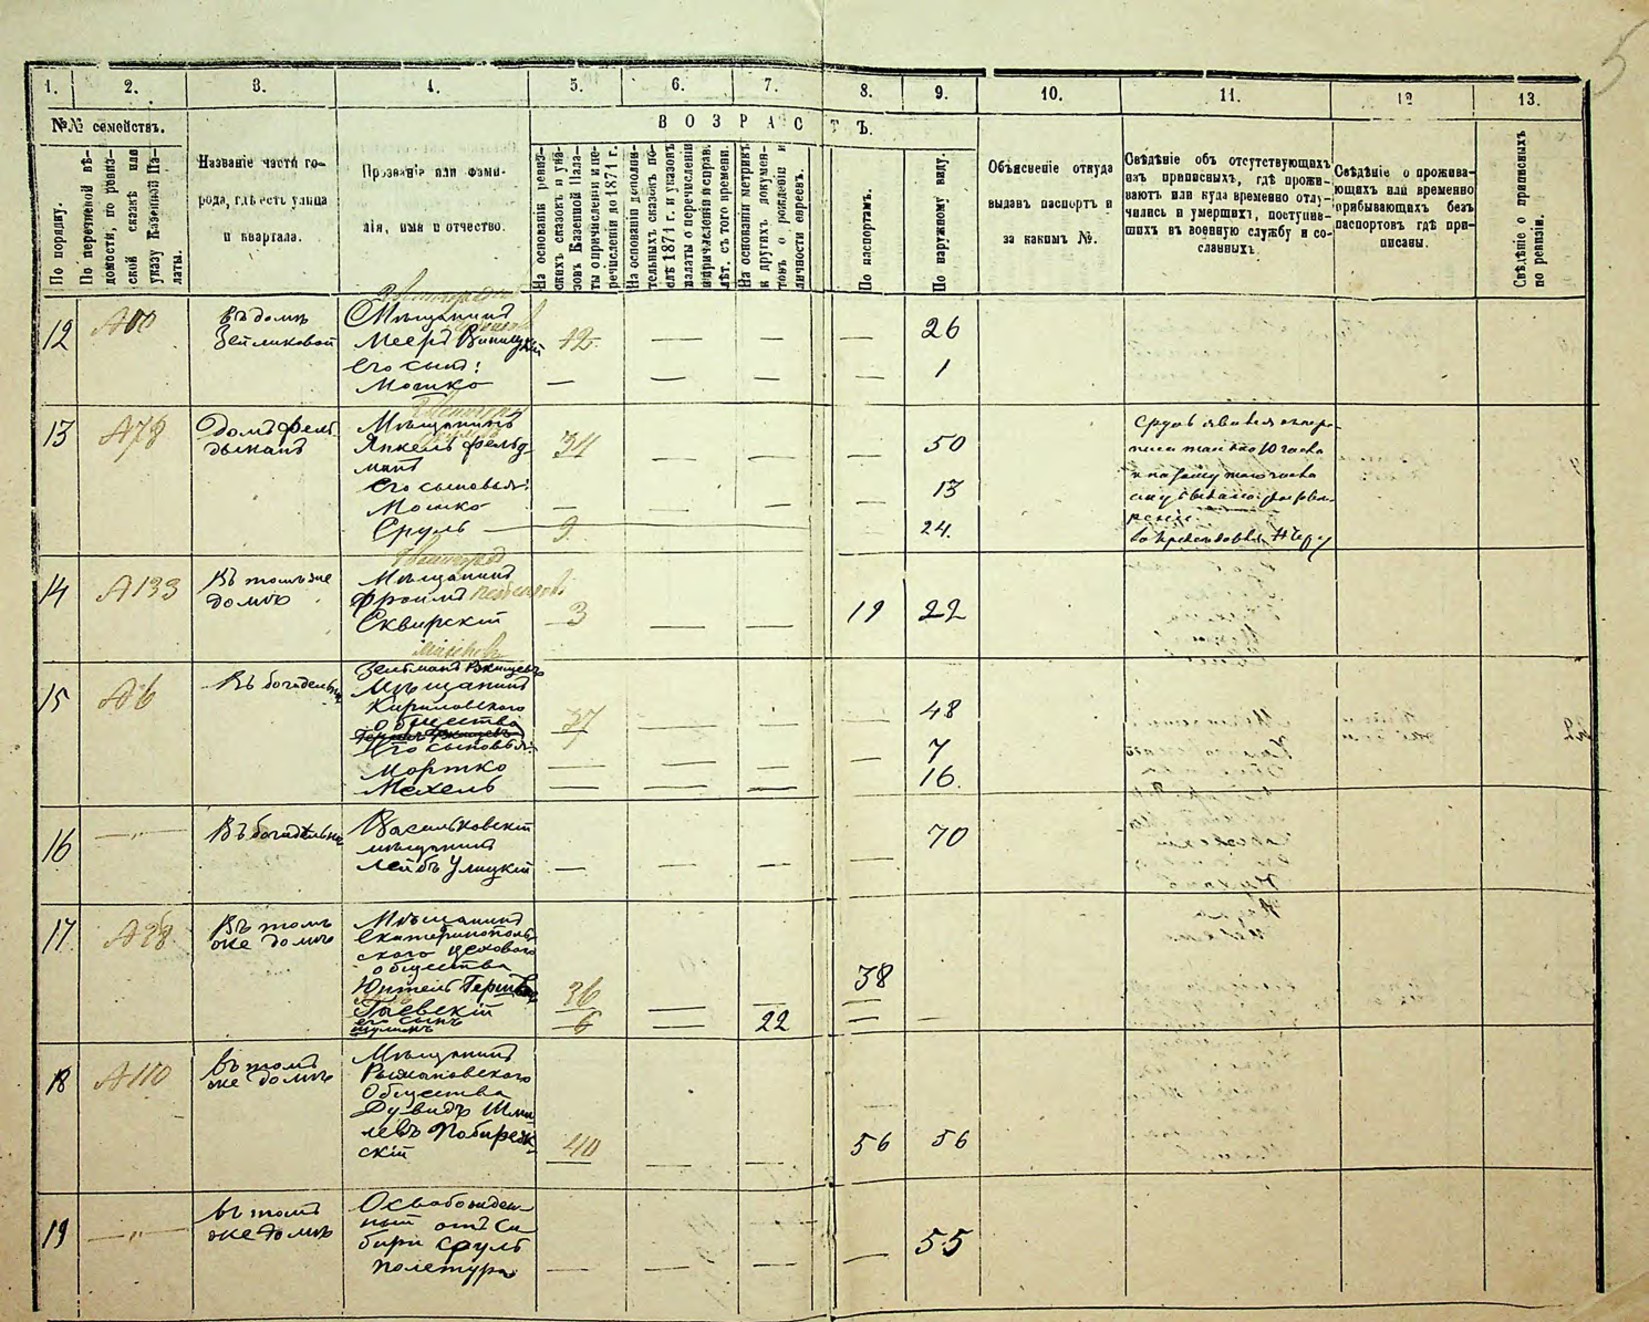 5
1. 2. 3. 4. 5. 6. 7. 8. 9. 10. 11. 12 13.
№№ семействъ.
ВОЗРАСТЪ.
По порядку.
По переписной вѣ-
домости, по ревиз-
ской сказкѣ или
указу Казенной Па-
латы.
Названіе части го-
рода, гдѣ есть улица
и квартала.
Прозваніе или фами-
лія, имя и отчество.
На основаніи ревиз-
скихъ сказокъ и ука-
зовъ Казенной Пала-
ты о причисленіи и пе-
речисленіи до 1871 г.
На основаніи дополни-
тельныхъ сказокъ по-
слѣ 1871 г. и указовъ
палаты о перечисленіи
и причисленіи справ.
лѣт. съ того времени.
На основаніи метрикъ
и другихъ докумен-
товъ о рожденіи и
личности евреевъ.
По паспортамъ.
По наружному виду.
Объясненіе откуда
выданъ паспортъ и
за какимъ №.
Свѣдѣніе объ отсутствующихъ
изъ приписныхъ, гдѣ прожи-
ваютъ или куда временно отлу-
чились и умершихъ, поступив-
шихъ въ военную службу и со-
сланныхъ.
Свѣдѣніе о прожива-
ющихъ или временно
прибывающихъ безъ
паспортовъ гдѣ при-
писаны.
Свѣдѣніе о приписныхъ
по ревизіи.
12 А60
Въ домѣ
Зейликовой
Мѣщанинъ
Мееръ Виницкій
его сынъ:
Мошко
12 — — — 26
— — — — 1
13 А78
Домъ Фельд
дымана
Мѣщанинъ
Янкель Фельд-
манъ
Его сыновья:
Мошко
Сруль
34 — — — 50
— — — — 13
9 24.
Сруль явился
14 А133
Въ томъ же
домѣ
Мѣщанинъ
Фроимъ
Сквирскій
3 — — 19 22
15 А6
Въ богадельнѣ
Зельманъ
Мѣщанинъ
Кириловскаго
общества
Его сыновья:
Мортко
Мехель
37 — — — 48
— — — — 7
— — — 16.
16 —"—
Въ богадельнѣ
Васильковскій
мѣщанинъ
Лейбъ Улицкій
— — — — 70
17 А28
Въ томъ
же домѣ
Мѣщанинъ
Екатеринополь
скаго цеховаго
общества
Гаевскій
его сынъ
36 — — 38
6 — 22 — —
18 А110
Въ томъ
же домѣ
Мѣщанинъ
Рыжановскаго
Общества
Дувидъ Шму
левъ Побереж
скій
40 — — 56 56
19 —"—
Въ томъ
же домѣ
Освобожден-
ный отъ Си-
бири Сруль
Полетура
— — — — 55